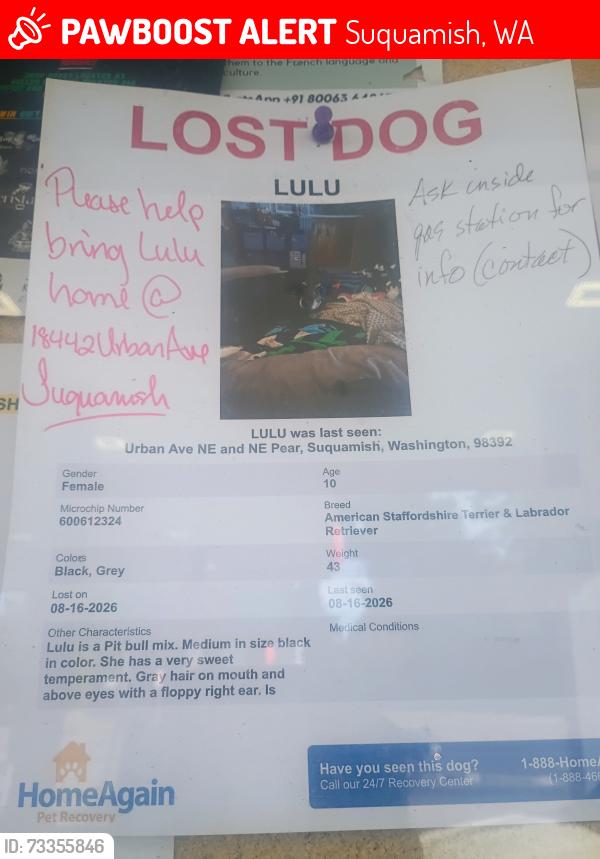 PAWBOOST ALERT Suquamish, WA
them to the French language and
culture.
+91 80063
LOST DOG
LULU
Please help
bring Lulu
home @
18442 Urban Ave
Suquamish
Ask inside
gas station for
info (contact)
LULU was last seen:
Urban Ave NE and NE Pear, Suquamish, Washington, 98392
Gender
Female
Age
10
Microchip Number
600612324
Breed
American Staffordshire Terrier & Labrador
Retriever
Colors
Black, Grey
Weight
43
Lost on
08-16-2026
Last seen
08-16-2026
Other Characteristics
Lulu is a Pit bull mix. Medium in size black
in color. She has a very sweet
temperament. Gray hair on mouth and
above eyes with a floppy right ear. Is
Medical Conditions
HomeAgain
Pet Recovery
Have you seen this dog?
Call our 24/7 Recovery Center
1-888-HomeA
(1-888-466
ID: 73355846